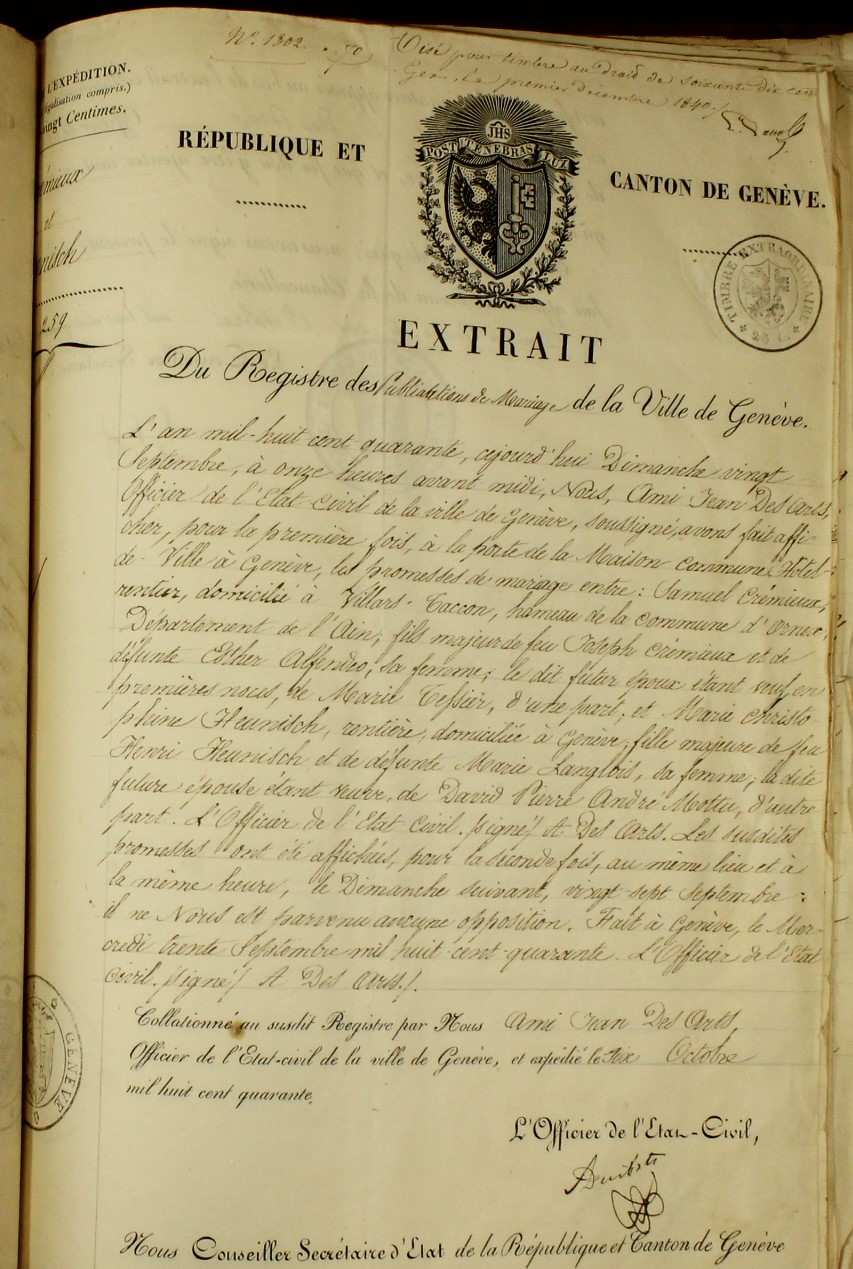 N.° 1302.
Visé pour timbre au Droit de soixante dix cent
Gex, le premier décembre 1840
L'EXPÉDITION.
(légalisation compris.)
vingt Centimes.
RÉPUBLIQUE ET
JHS
POST TENEBRAS LUX
CANTON DE GENÈVE.
TIMBRE EXTRAORDINAIRE
* 25 C. *
émieux
et
nisch
259
EXTRAIT
Du Registre des Publications de Mariage de la Ville de Genève.
L'an mil-huit cent quarante, cejourd'hui Dimanche vingt
Septembre, à onze heures avant midi, Nous, Ami Jean Des Arts,
Officier de l'Etat-civil de la ville de Genève, soussigné, avons fait affi-
cher, pour la première fois, à la porte de la Maison commune, Hôtel-
de-Ville à Genève, les promesses de mariage entre: Samuel Crémieux,
rentier, domicilié à Villars-Taccon, hameau de la commune d'Ornex,
Département de l'Ain, fils majeur de feu Joseph Crémieux et de
défunte Esther Alfendeo, sa femme; le dit futur époux étant veuf en
premières noces, de Marie Tessier, d'une part; et Marie Christo-
phine Heunisch, rentière, domiciliée à Genève, fille majeure de feu
Henri Heunisch et de défunte Marie Langlois, sa femme; la dite
future épouse étant veuve, de David Pierre André Mottu, d'autre
part. L'Officier de l'Etat civil. /signé/ A Des Arts. Les susdites
promesses ont été affichées, pour la seconde fois, au même lieu et à
la même heure, le Dimanche suivant, vingt sept Septembre:
il ne Nous est parvenu aucune opposition. Fait à Genève, le Mer-
credi trente Septembre mil huit-cent-quarante. L'Officier de l'Etat
civil. /signé/ A Des Arts./.
Collationné au susdit Registre par Nous Ami Jean Des Arts,
Officier de l'Etat-civil de la ville de Genève, et expédié le Six Octobre
mil huit cent quarante.
GENÈVE
L'Officier de l'Etat-Civil,
Nous Conseiller Secrétaire d'Etat de la République et Canton de Genève